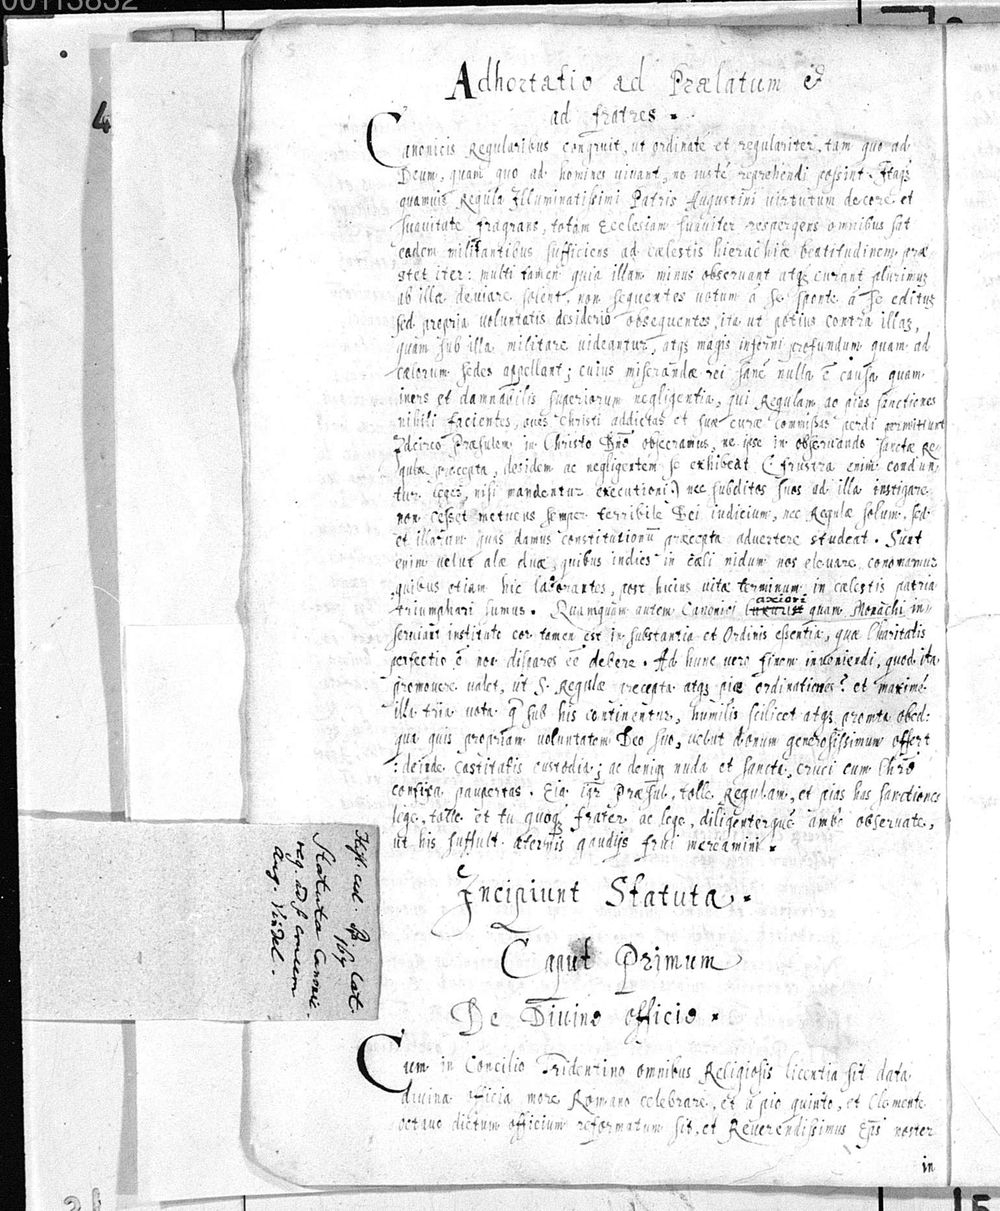 00113832
4
Adhortatio ad Prælatum &
ad fratres.
Canonicis Regularibus congruit, ut ordinaté et regulariter, tam quo ad
Deum, quam quo ad homines vivant, ne iusté reprehendi possint. Itaqꝫ
quamvis Regula Illuminatissimi Patris Augustini virtutum decore et
suavitate fragrans, totam Ecclesiam suaviter respergens omnibus sat
eadem militantibus sufficiens ad cælestis hierachiæ beatitudinem præ
stet iter: multi tamen quia illam minus observant atqꝫ curant plurimuꝫ
ab illa deviare solent, non sequentes votum á se sponte á se edituꝫ
sed propria voluntatis desiderio obsequentes, ita ut potius contra illaꝫ,
quam sub illa militare videantur, atqꝫ magis inferni profundum quam ad
cælorum sedes appellant; cuius miserandæ rei sané nulla ē causa quam
iners et damnabilis superiorum negligentia, qui Regulam ac pias sanctiones
nihili facientes, oves Christi addictas et suæ curæ commissas perdi permittunt
Idcirco Præsulem in Christo Dno obsecramus, ne ipse in observando sanctæ Re-
gulæ præcepta, desidem ac negligentem se exhibeat (frustra enim condun
tur leges, nisi mandentur executioni) nec subditos suos ad illa instigare
non cesset metuens semper terribile Dei iudicium, nec Regulæ solum, sed
et illarum quas damus constitutionū præcepta advertere studeat. Sunt
enim velut alæ duæ, quibus indies in cæli nidum nos elevare conamur
quibus etiam hic laborantes, post huius vitæ terminum in cælestis patria
triumphari sumus. Quamquam autem Canonici
axiori
quam Monachi in-
serviant institute cor tamen est in substantia et Ordinis essentia, quæ Charitatis
perfectio ē non dispares eē debere. Ad hunc vero finem inveniendi, quod ita
promovere valet, ut S. Regulæ præcepta atqꝫ piæ ordinationes? et maximé
illa tria vota q̄ sub his continentur, humilis scilicet atqꝫ promta obed:
qua quis propriam voluntatem Deo suo, velut donum generosissimum offert
: deinde Castitatis custodia; ac deniqꝫ nuda et sancta, cruci cum Chrō
confixa paupertas. Eia igr Præsul, tolle Regulam, et pias has sanctiones
lege, tolle et tu quoqꝫ frater ac lege, diligenterqué ambo observate,
ut his suffult. æternis gaudijs frui mereamini.
Incipiunt Statuta.
Caput Primum
De Divino officio.
Cum in Concilio Tridentino omnibus Religiosis licentia sit data
divina officia more Romano celebrare, et á pio quinto, et Clemente
octavo dictum officium reformatum sit, et Reverendissimus Eps noster
in
Lat.
167
Statuta Canonic.
reg. ad S. Crucem
Aug. Vindel.
5